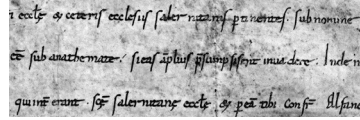 i eccl̄e & ceteris ecclesiis salernitanis ptinentes. sub nomine
ēe sub anathemate. si eas āplius p̄sumpsissent inuadere. Inde n
qui int̄ erant. sc̄e salernitane eccl̄e & p eā tibi consir̄ Alfano